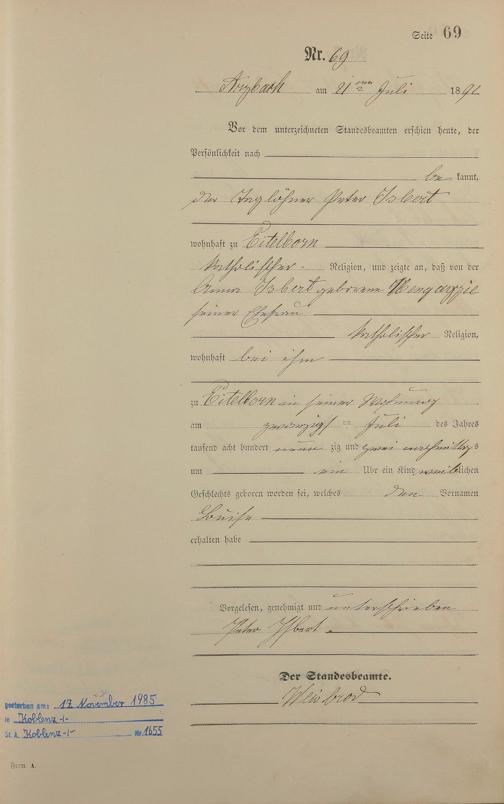 Seite 69
Nr. 69
Arzbach am 21ten Juli 1892
Vor dem unterzeichneten Standesbeamten erschien heute, der
Persönlichkeit nach
bekannt,
der Taglöhner Peter Isbert
wohnhaft zu Eitelborn
katholischer Religion, und zeigte an, daß von der
Anna Isbert geborene
seiner Ehefrau
katholischer Religion,
wohnhaft bei ihm
zu Eitelborn in seiner Wohnung
am zwanzigsten Juli des Jahres
tausend acht hundert neunzig und zwei nachmittags
um ein Uhr ein Kind weiblichen
Geschlechts geboren worden sei, welches den Vornamen
Luise
erhalten habe
Vorgelesen, genehmigt und unterschrieben
Peter Isbert
Der Standesbeamte.
Weisbrod
gestorben am: 17. November 1985
in Koblenz -/-
St. A. Koblenz -/- Nr. 1655
Form. A.